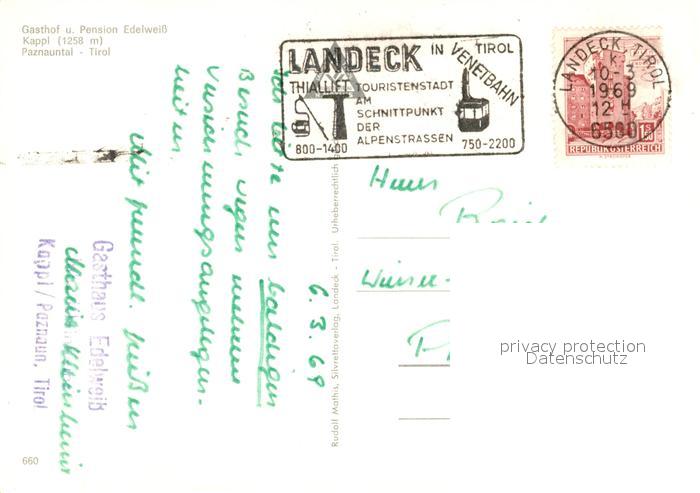 Gasthof u. Pension Edelweiß
Kappl (1258 m)
Paznauntal - Tirol
LANDECK IN TIROL
VENETBAHN
THIALLIFT
TOURISTENSTADT
AM
SCHNITTPUNKT
DER
ALPENSTRASSEN
800-1400
750-2200
LANDECK, TIROL
10.-3.
1969
12 H
6500
REPUBLIK ÖSTERREICH
6.3.69
Ich bitte um baldigen
Besuch wegen
Versicherungsangelegen-
heiten.
Mit freundl. Grüßen
Gasthaus Edelweiß
Kappl / Paznaun, Tirol
Rudolf Mathis, Silvrettaverlag, Landeck - Tirol. Urheberrechtlich
Herrn
privacy protection
Datenschutz
660